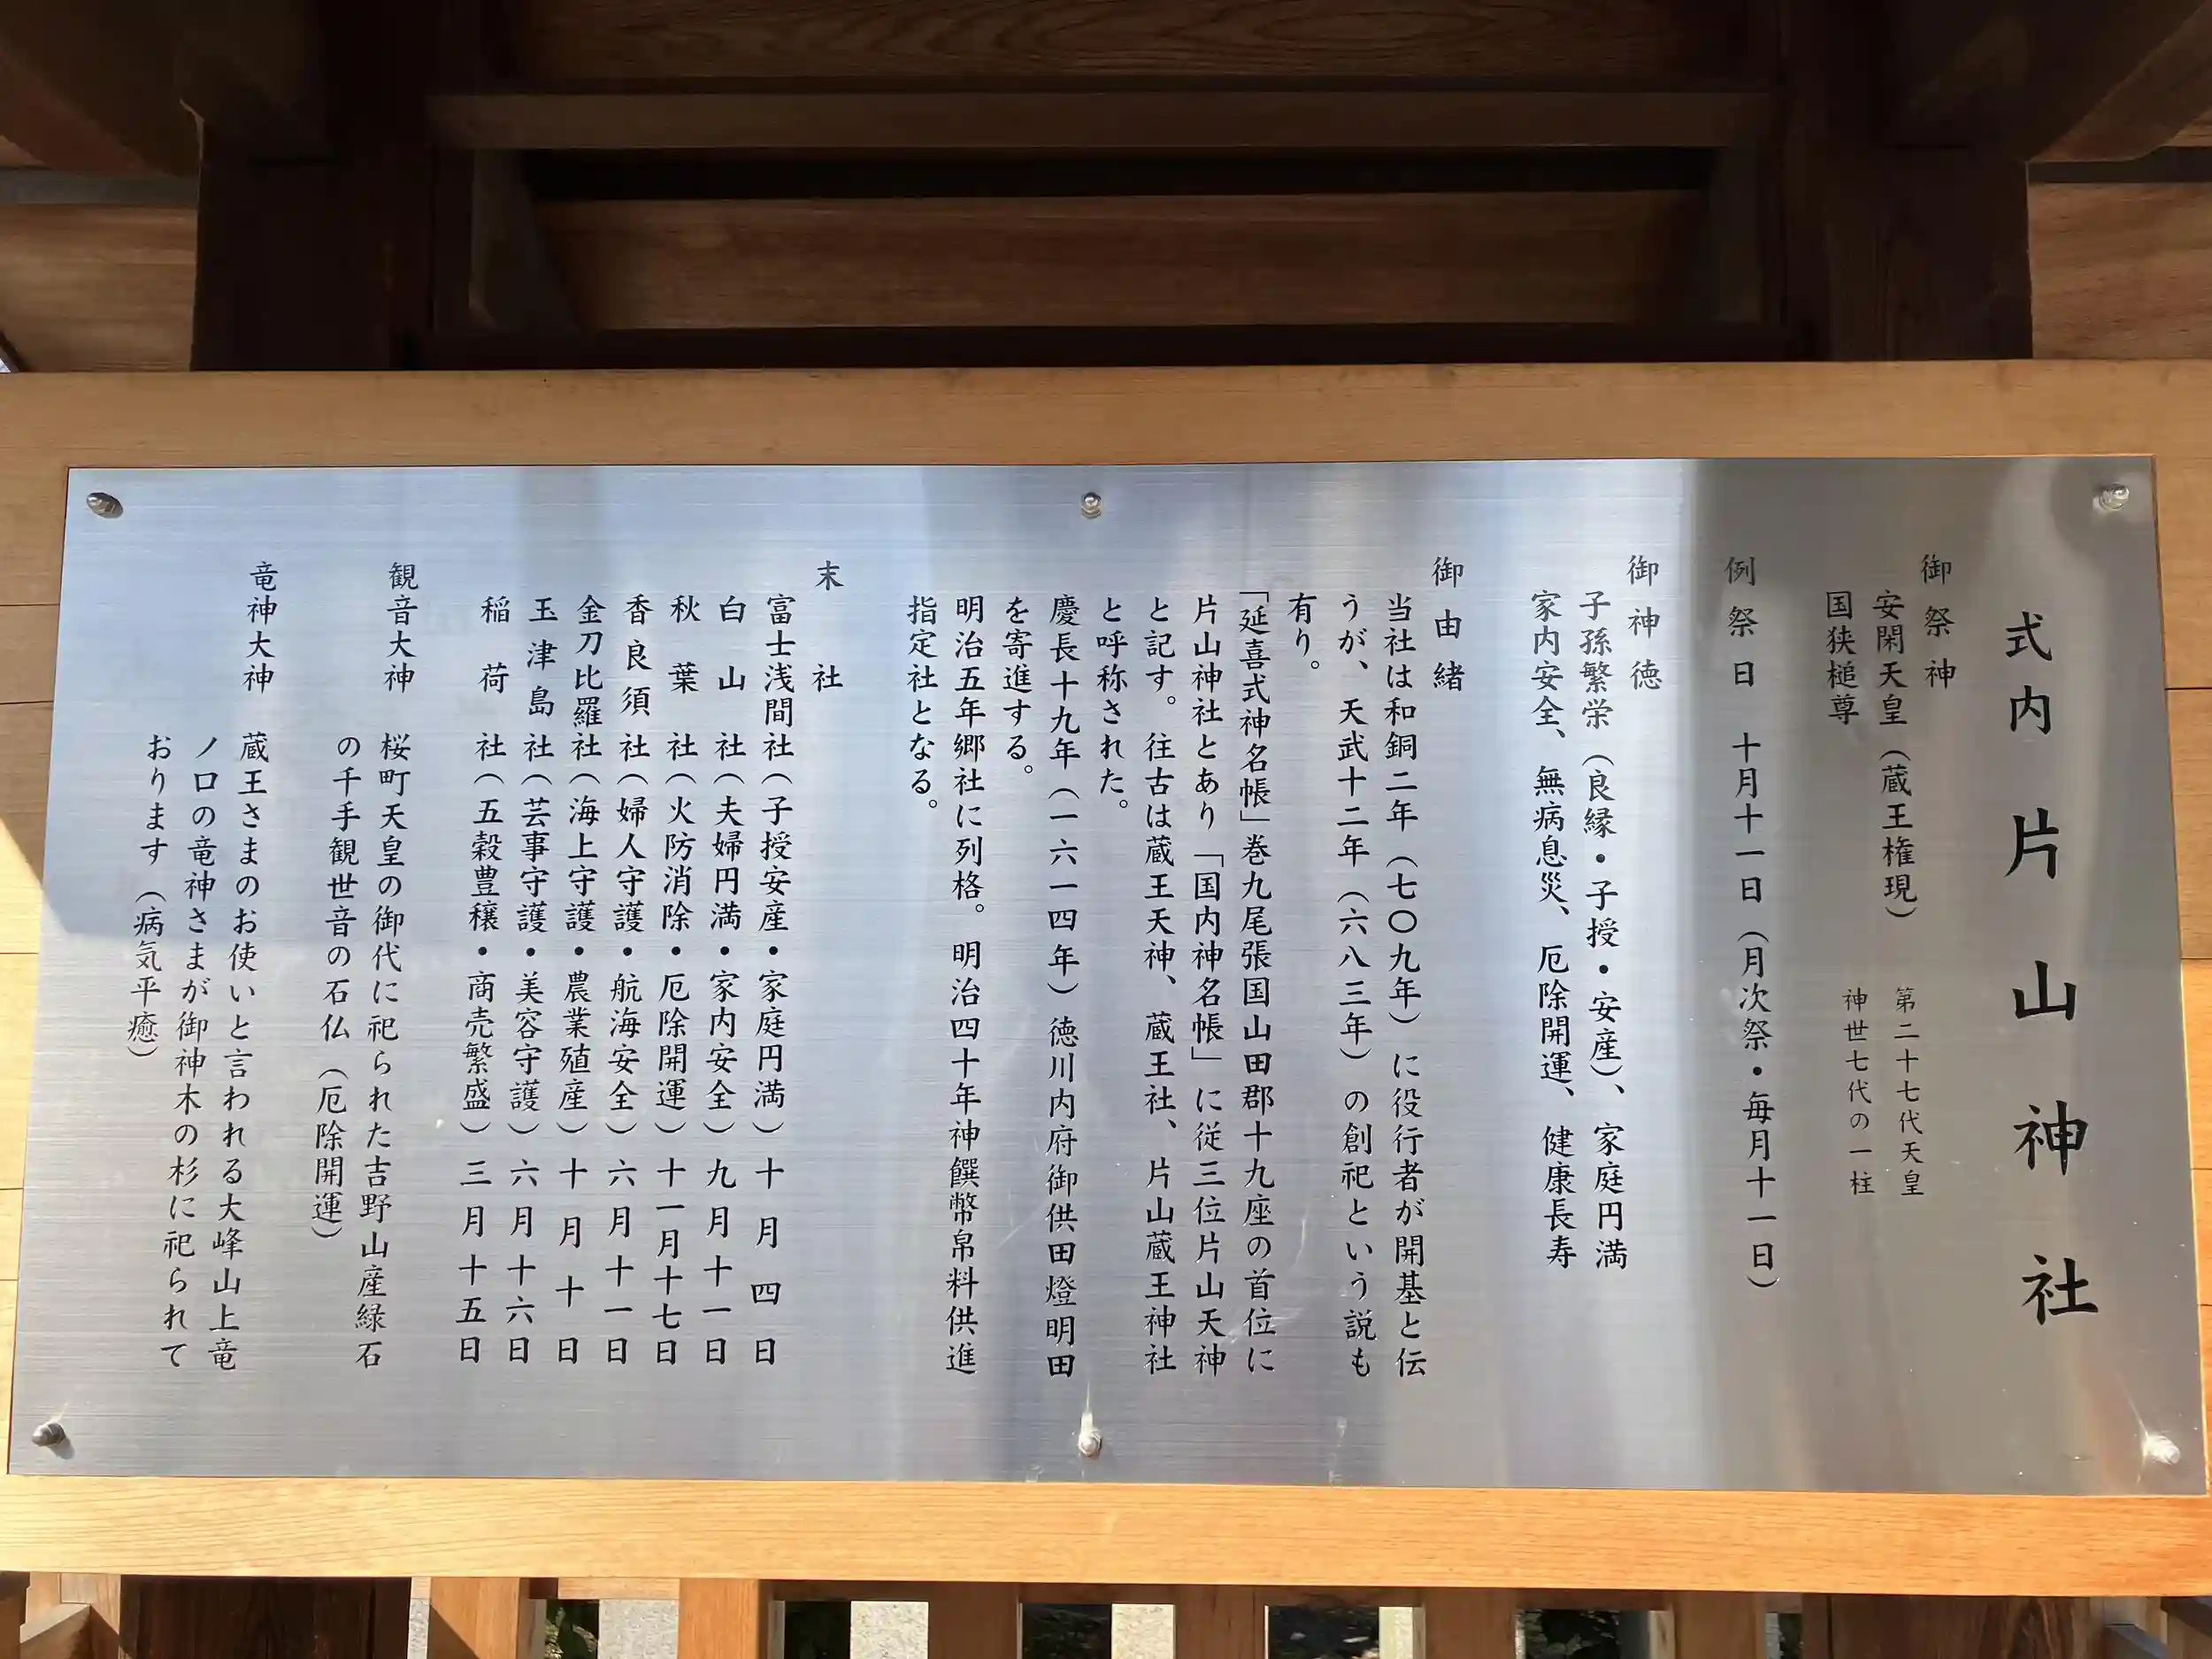 式内 片山神社
御祭神
安閑天皇（蔵王権現） 第二十七代天皇
国狭槌尊 神世七代の一柱
例祭日 十月十一日（月次祭・毎月十一日）
御神徳
子孫繁栄（良縁・子授・安産）、家庭円満
家内安全、無病息災、厄除開運、健康長寿
御由緒
当社は和銅二年（七〇九年）に役行者が開基と伝
うが、天武十二年（六八三年）の創祀という説も
有り。
「延喜式神名帳」巻九尾張国山田郡十九座の首位に
片山神社とあり「国内神名帳」に従三位片山天神
と記す。往古は蔵王天神、蔵王社、片山蔵王神社
と呼称された。
慶長十九年（一六一四年）徳川内府御供田燈明田
を寄進する。
明治五年郷社に列格。明治四十年神饌幣帛料供進
指定社となる。
末社
富士浅間社（子授安産・家庭円満）十月四日
白山社（夫婦円満・家内安全）九月十一日
秋葉社（火防消除・厄除開運）十一月十七日
香良須社（婦人守護・航海安全）六月十一日
金刀比羅社（海上守護・農業殖産）十月十日
玉津島社（芸事守護・美容守護）六月十六日
稲荷社（五穀豊穣・商売繁盛）三月十五日
観音大神 桜町天皇の御代に祀られた吉野山産緑石
の千手観世音の石仏（厄除開運）
竜神大神 蔵王さまのお使いと言われる大峰山上竜
ノ口の竜神さまが御神木の杉に祀られて
おります（病気平癒）